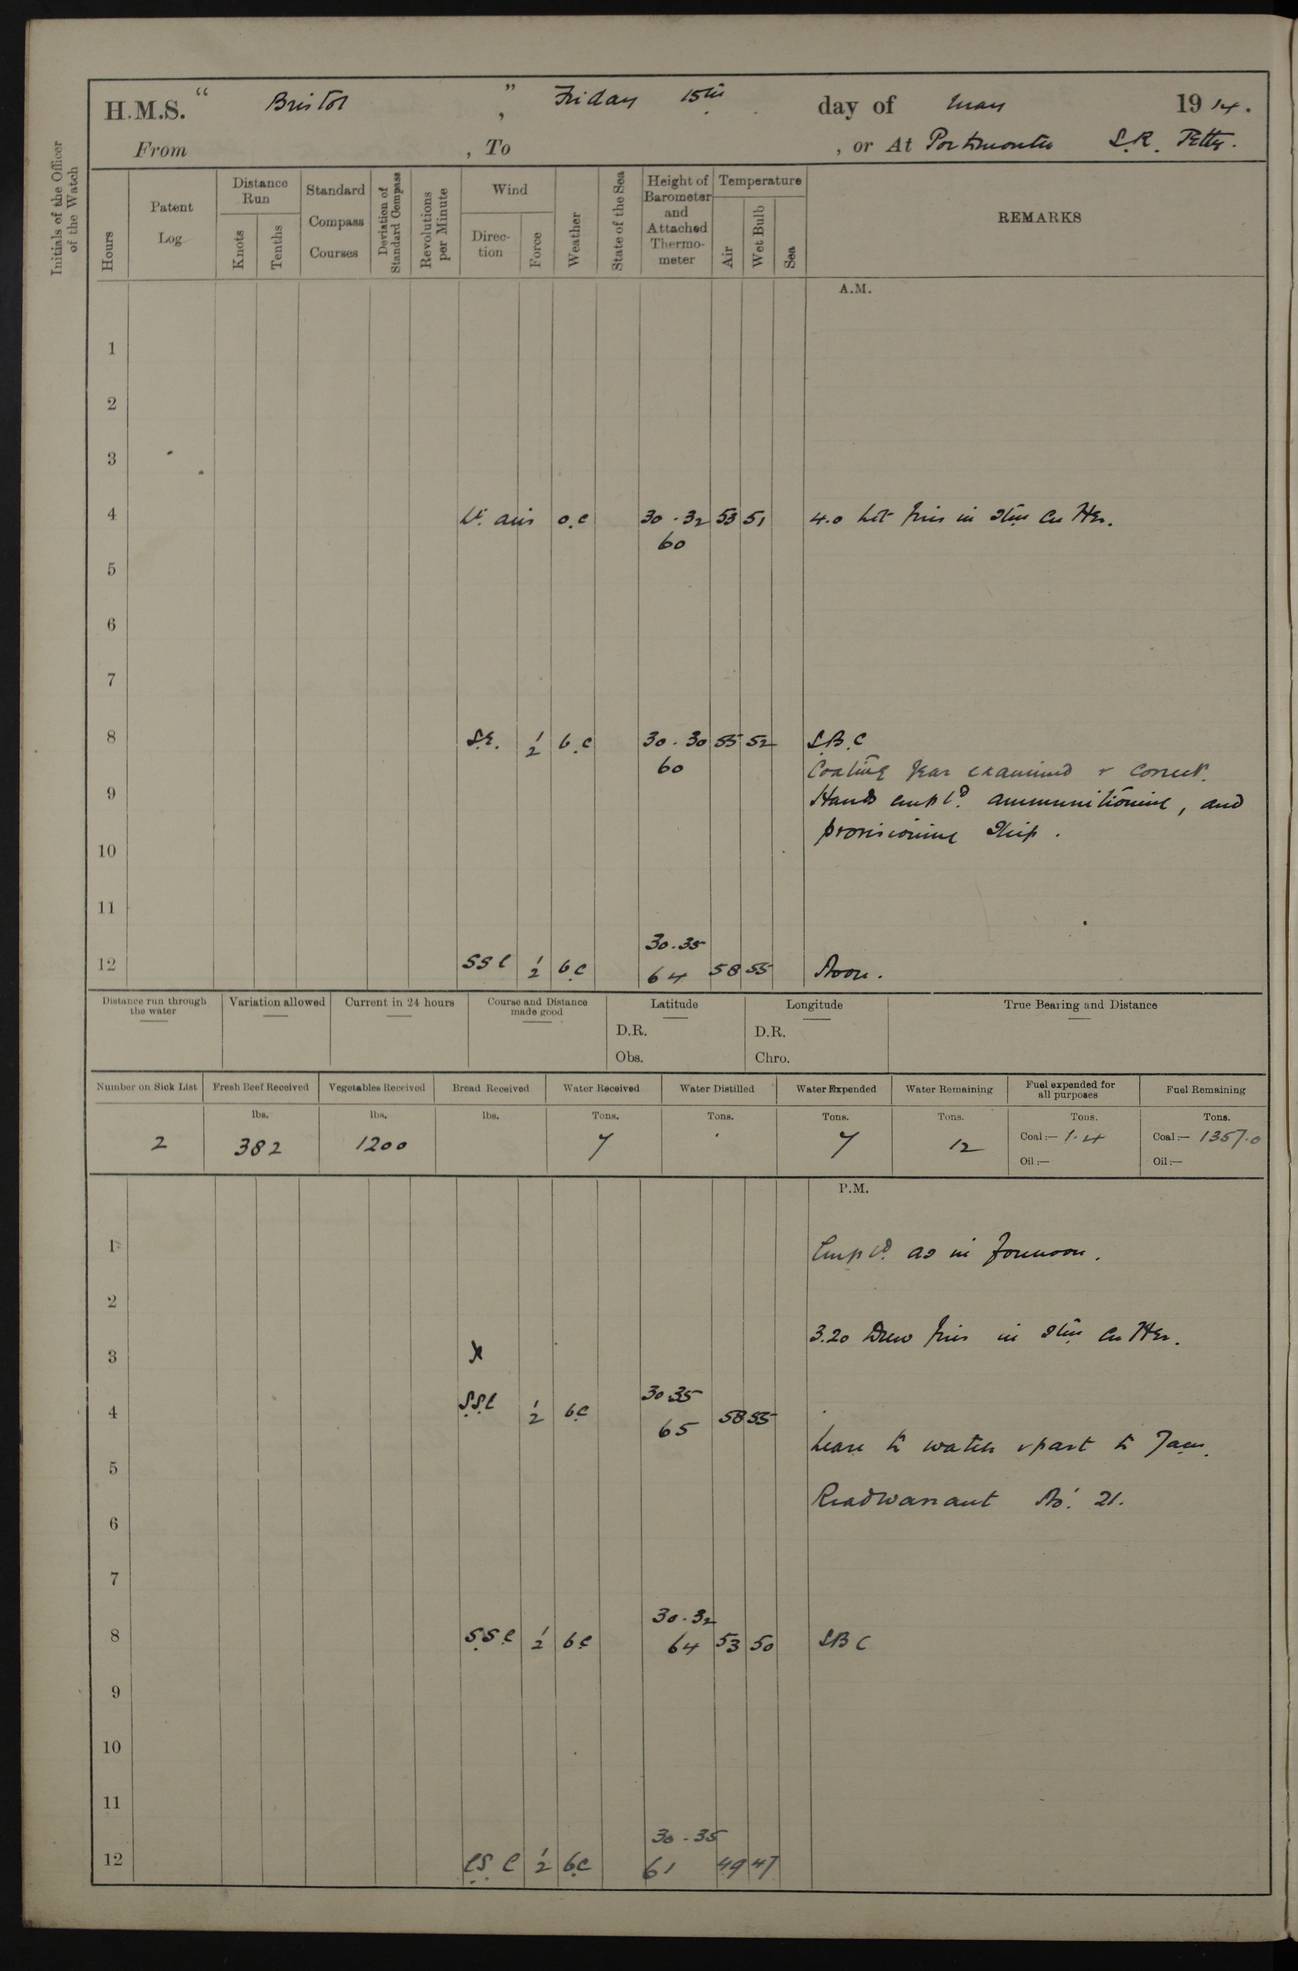 H.M.S. " Bristol ", Friday 15th day of May 1914.
From , To , or At Portsmouth S.R. Jetty.
Initials of the Officer of the Watch
Hours
Patent Log
Distance Run
Knots
Tenths
Standard Compass Courses
Deviation of Standard Compass
Revolutions per Minute
Wind
Direction
Force
Weather
State of the Sea
Height of Barometer and Attached Thermometer
Temperature
Air
Wet Bulb
Sea
REMARKS
A.M.
1
2
3
4 Lt. airs o.c 30.32 53 51 4.0 Lit fires in Stm Cutter.
60
5
6
7
8 S.E. 1/2 b.c 30.30 55 52 S.B.C
60
Coaling gear examined & correct.
9 Hands empld. ammunitioning, and
provisioning Ship.
10
11
30.35
12 SSE 1/2 bc 64 58 55 Noon.
Distance run through the water
Variation allowed
Current in 24 hours
Course and Distance made good
Latitude
D.R.
Obs.
Longitude
D.R.
Chro.
True Bearing and Distance
Number on Sick List Fresh Beef Received Vegetables Received Bread Received Water Received Water Distilled Water Expended Water Remaining Fuel expended for all purposes Fuel Remaining
lbs. lbs. lbs. Tons. Tons. Tons. Tons. Tons. Tons.
2 382 1200 7 7 12 Coal:— 1.4 Coal:— 1357.0
Oil:— Oil:—
P.M.
1 Empld. as in forenoon.
2
3.20 Drew fires in Stm Cutter.
3
30 35
4 S.S.E 1/2 bc 65 58 55
Leave to watch & part to 7am.
5
Read Warrant No. 21.
6
7
30.32
8 S.S.E 1/2 bc 64 53 50 SBC
9
10
11
30.35
12 ES.E 1/2 bc 61 49 47